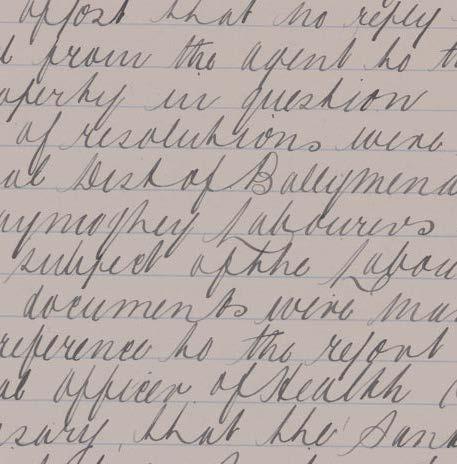 that no reply
from the agent to
in question
of resolutions were
Dist of Ballymena
Labourers
subject of the Labou
documents were
reference to the report
officer of Health
that the San